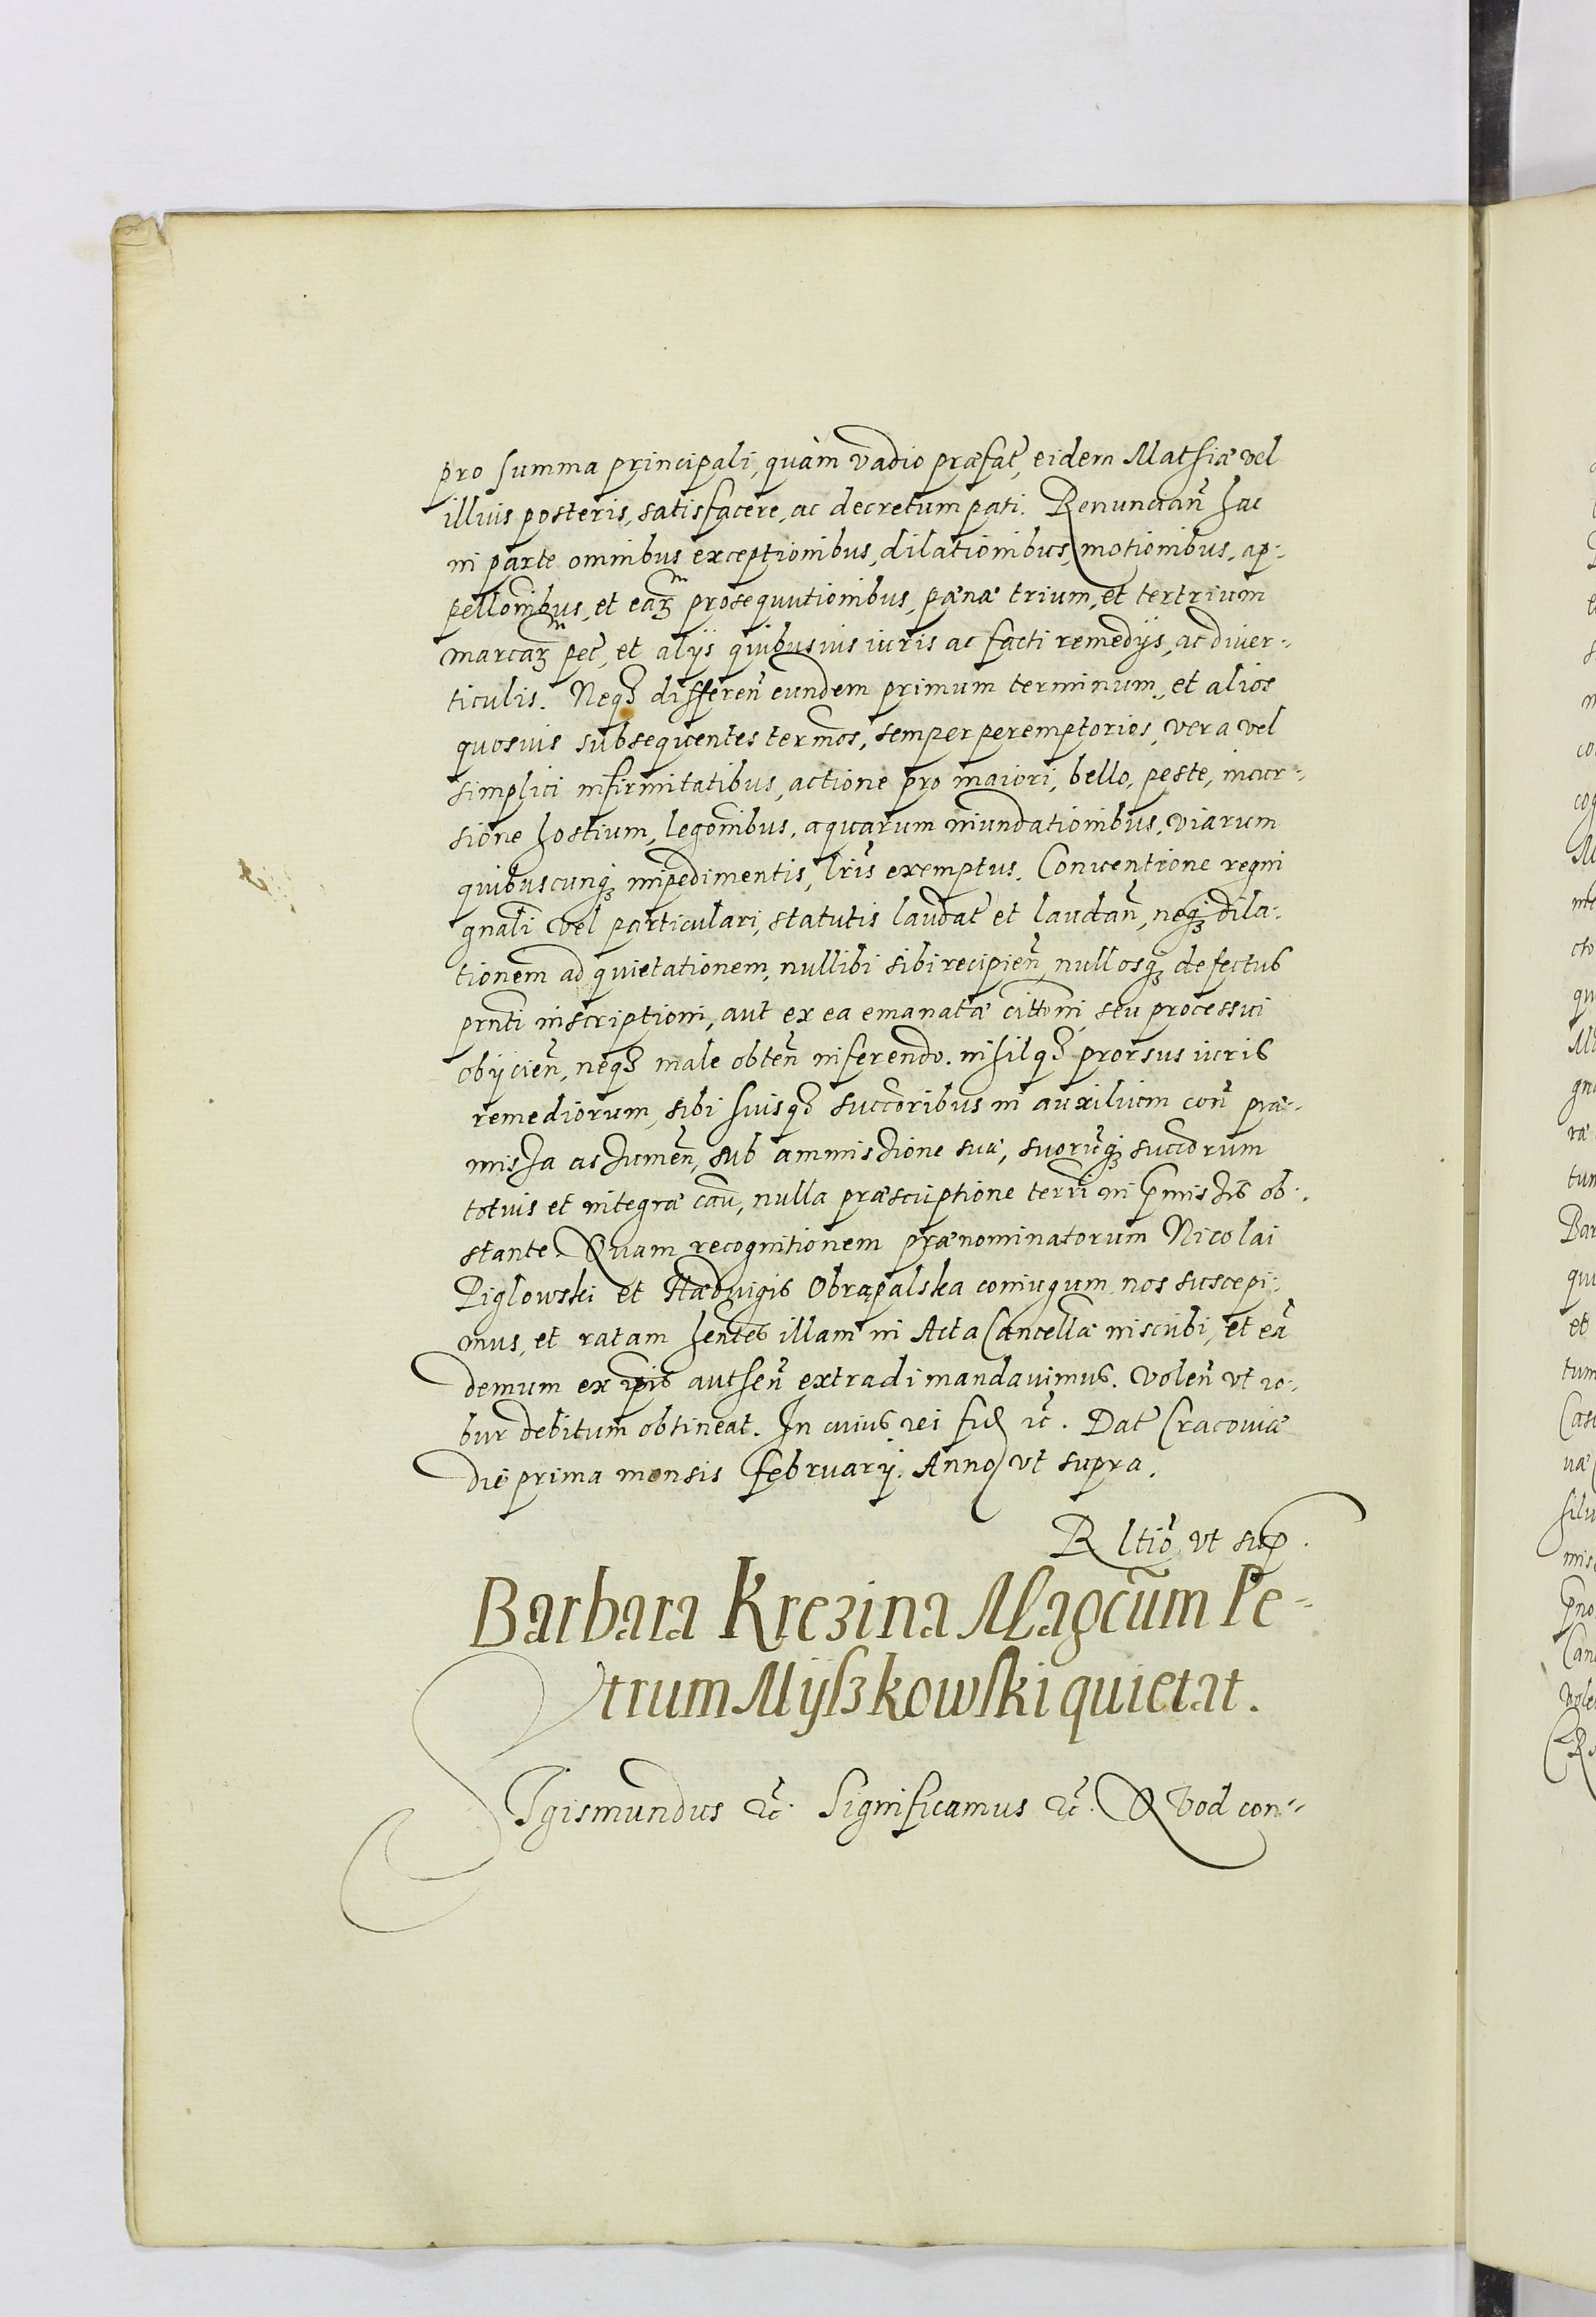 pro summa principali, quàm vadio præfat̃, eidem Mathiæ vel
illius posteris, satisfacere, ac decretum pati. Renuncian̄ hac
in parte omnibus exceptionibus, dilationibus, motionibus, ap-
pellonibus, et eaꝝm prosequutionibus, pænæ trium, et tertrium
marcaꝝm pec̃, et alijs quibusuis iuris ac facti remedijs, ac diuer-
ticulis. Neqꝫ differen̄ eundem primum terminum, et alios
quosuis subsequentes termos, semper peremptorios, vera vel
simplici infirmitatibus, actione pro maiori, bello, peste, incur-
sione hostium, legonibus, aquarum inundationibus, viarum
quibuscunqꝫ impedimentis, lr̃is exemptus. Conuentione regni
gnali vel particulari, statutis laudat̃ et laudan̄, neqꝫ dila-
tionem ad quietationem, nullibi sibi recipien̄, nullosqꝫ defectus
prnti inscriptioni, aut ex ea emanatæ cittoni seu processui
obijcien̄, neqꝫ male obten̄ inferendo. nihilqꝫ prorsus iuris
remediorum, sibi suisqꝫ succoribus in auxilium con̄ præ-
missa assumen̄, sub ammissione suæ, suorũqꝫ succorum
totius et integræ cau̅, nulla præscriptione terri in p̄missis ob-
stante. Quam recognitionem prænominatorum Nicolai
Piglowski et Hæduigis Obrąpalska coniugum nos suscepi-
mus, et ratam hentes illam in Acta Cancellæ inscribi, et eã
demum ex ipsis authen̄ extradi mandauimus. Volen̄ vt ro-
bur debitum obtineat. In cuius rei fid ꝛc̃. Dat̃ Cracouiæ
die prima mensis februarij. Anno vt supra.
R ltio vt sup.
Barbara Krezina Magcũm Pe-
trum Mijszkowski quietat.
SIgismundus ꝛc̃. Significamus ꝛc̃. Quod con-